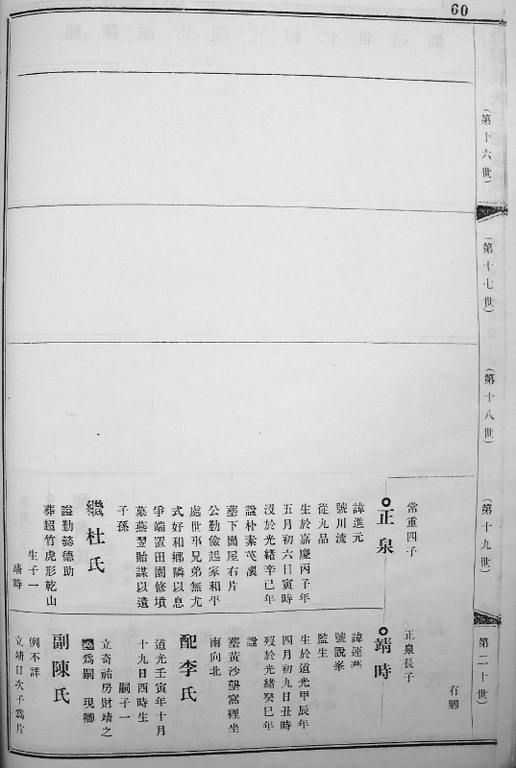 60
(第十六世)
(第十七世)
(第十八世)
(第十九世)
第二十世)
常重四子
正泉
諱進元
號川流
從九品
生於嘉慶丙子年
五月初六日寅時
沒於光緒辛巳年
諡朴素英虞
塟下崗屋右片
公勤儉起家和平
處世事兄弟無尤
式好和鄉隣以息
爭端置田園修墳
墓燕翌貽謀以遺
子孫
繼杜氏
諡勤懿德助
葬超竹虎形乾山
生子一
靖時
有卿
正泉長子
靖時
諱運
號說峯
監生
生於道光甲辰年
四月初九日丑時
歿於光緒癸巳年
諡
塟黃沙壟窩裡坐
南向北
配李氏
道光壬寅年十月
十九日酉時生
嗣子一
立奇祐房財靖之
為嗣 現卿
副陳氏
例不詳
立靖日次子為片